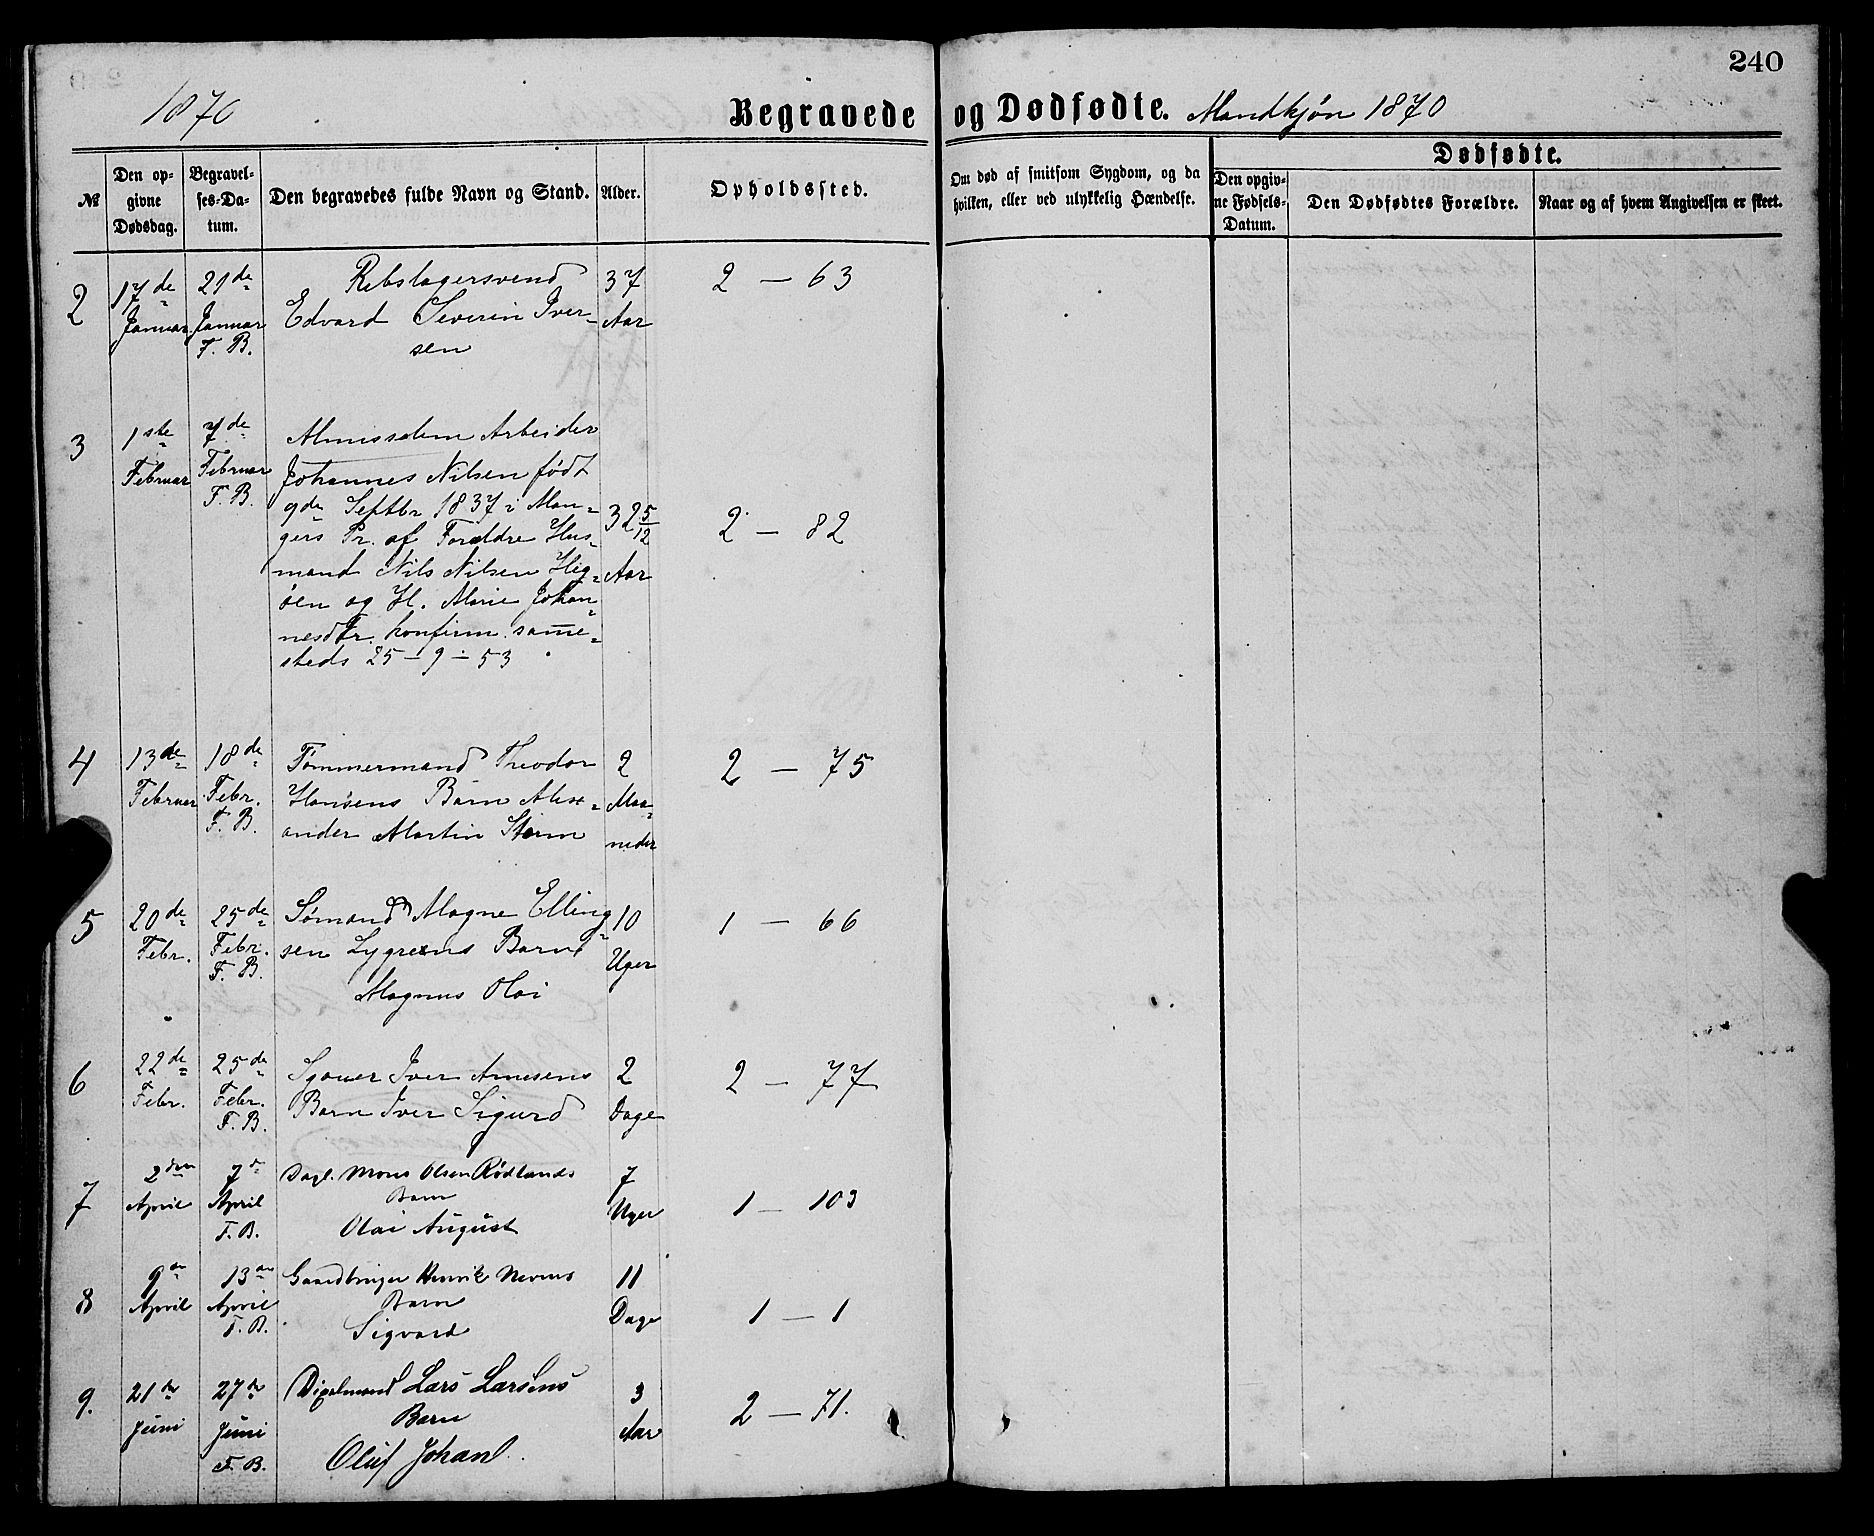 240
1870
Begravede og Dødfødte. Mandkjøn 1870
№
Den op-
givne
Dødsdag.
Begravel-
ses-Da-
tum.
Den begravedes fulde Navn og Stand.
Alder.
Opholdssted.
Om død af smitsom Sygdom, og da
hvilken, eller ved ulykkelig Hændelse.
Dødfødte.
Den opgiv-
ne Fødsels-
Datum.
Den Dødfødtes Forældre.
Naar og af hvem Angivelsen er skeet.
2
17de
Januar
21de
Januar
F. B.
Rebslagersvend
Edvard Severin Iver-
sen
37
Aar
2 – 63
3
1ste
Februar
7de
Februar
F. B.
Almisselem Arbeider
Johannes Nilsen født
9de Septbr 1837 i Man-
gers Pr. af Forældre Hus-
mand Nils Nilsen
og H. Marie Johan-
nesdtr. konfirm. samme-
steds 25–9–53
32 5/12
Aar
2 – 82
4
13de
Februar
18de
Febr.
F. B.
Tømmermand Theodor
Hansens Barn Alex-
ander Martin Storm
2
Maa-
neder
2 – 75
5
20de
Febr.
25de
Febr.
F. B.
Sømand Magne Elling-
sen Lygrens Barn
Magnus Olai
10
Uger
1 – 66
6
22de
Febr.
25de
Febr.
F. B.
Iver Arnesens
Barn Iver Sigurd
2
Dage
2 – 77
7
2den
April
7de
April
F. B.
Dagl. Mons Olsen Rødlands
Barn
Olai August
7
Uger
1 – 103
8
9de
April
13de
April
F. B.
Gaardbruger Henrik
Barn
Sigvard
11
Dage
1 – 1
9.
21de
Juni
27de
Juni
F. B.
Lars Larsens
Barn
Oluf Johan
3
Aar
2 – 71.